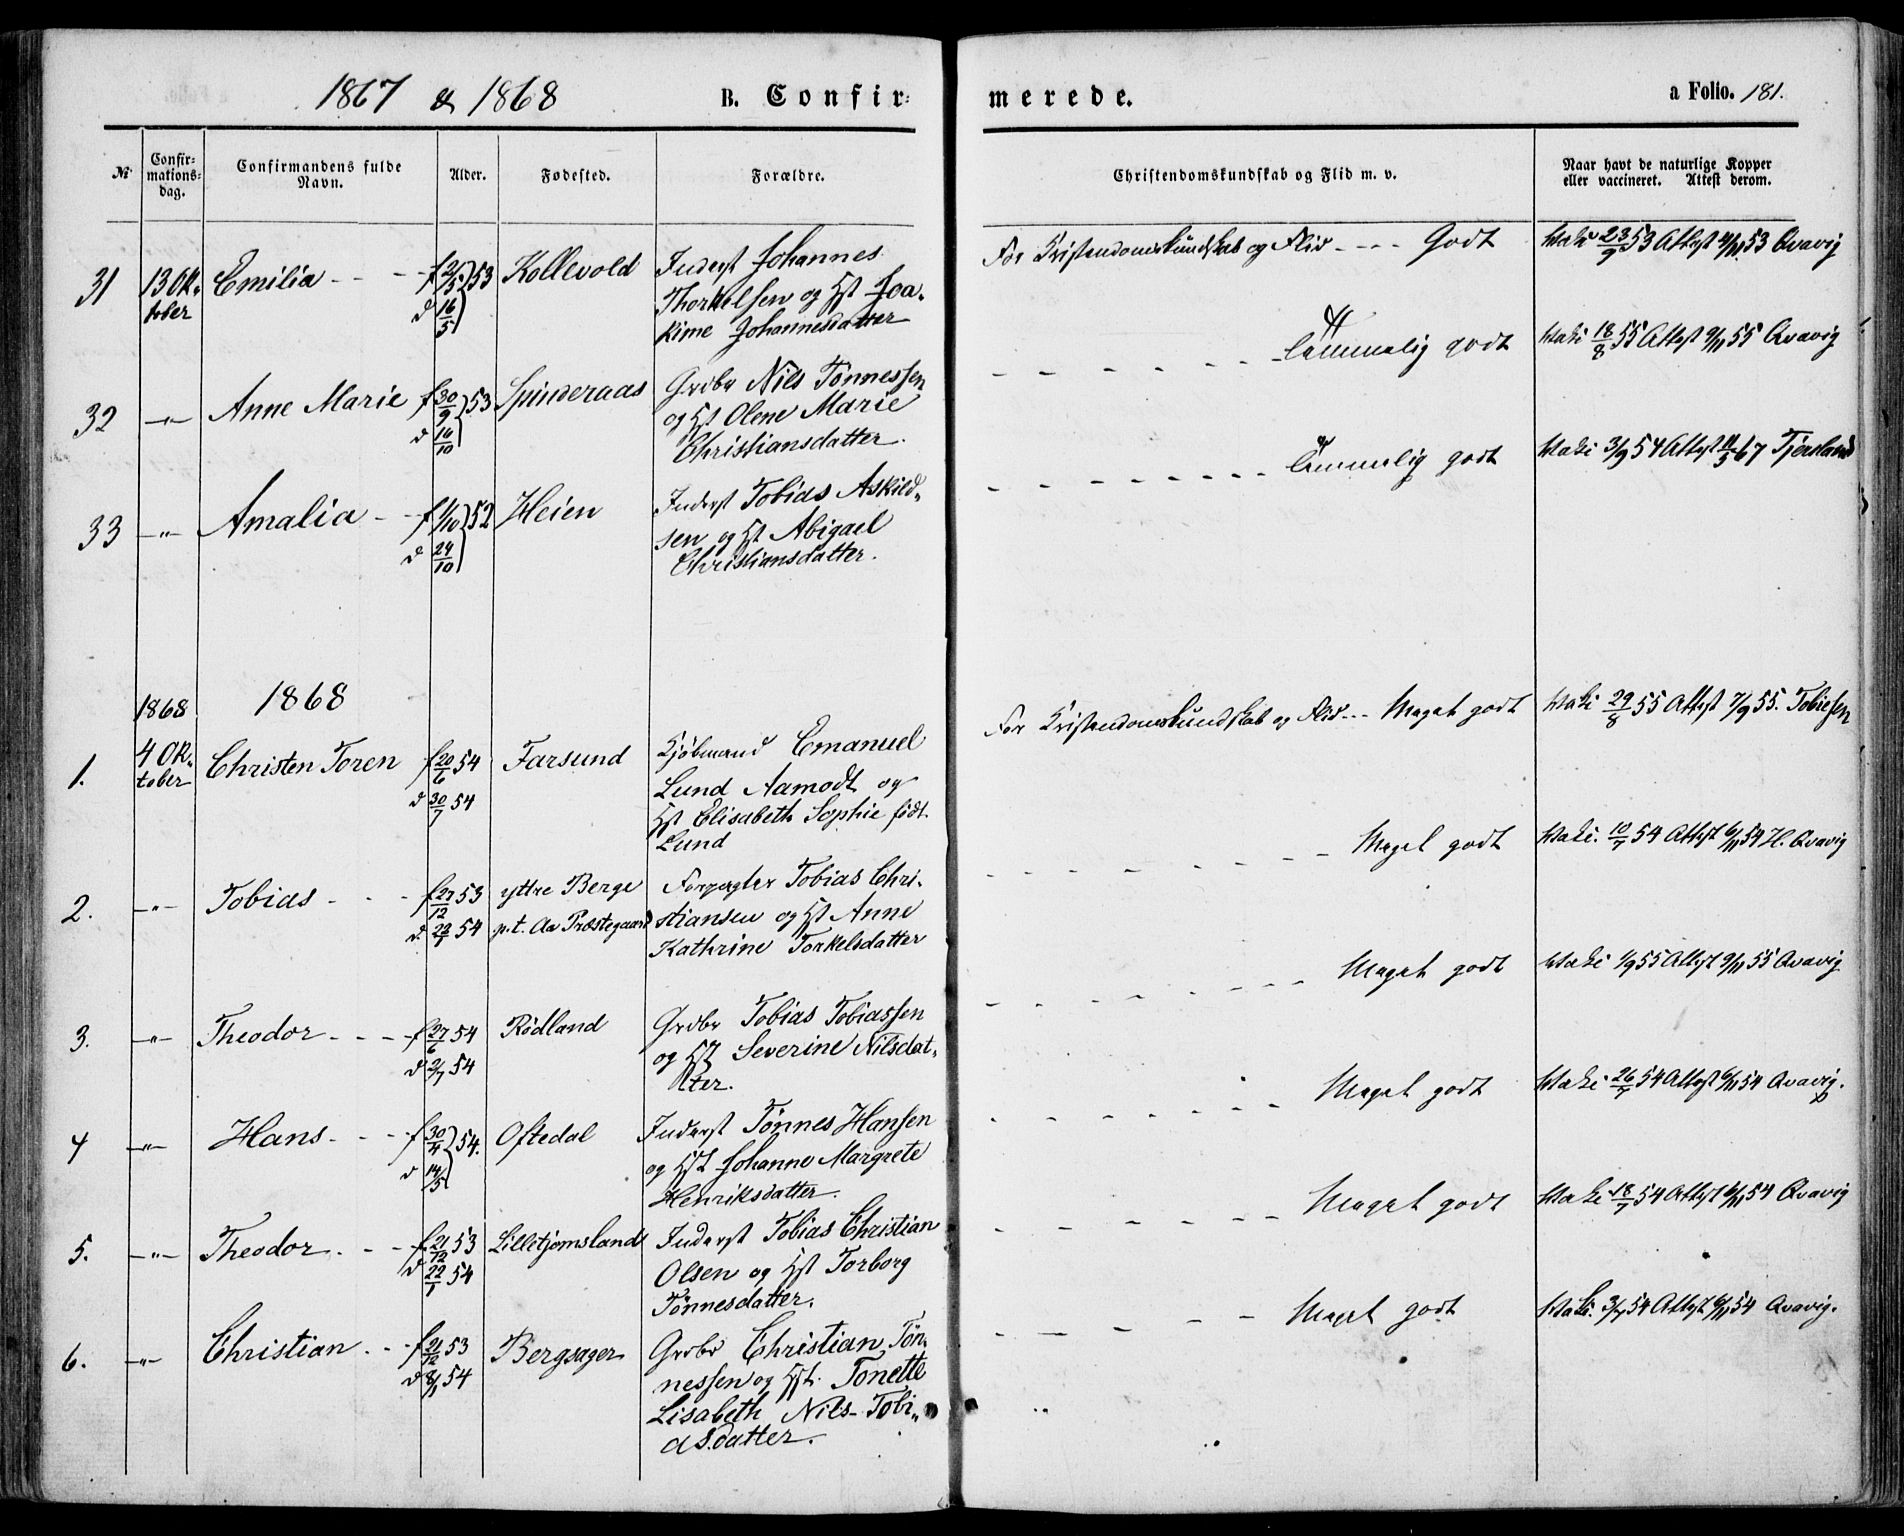 1867 & 1868 B. Confir=
merede. a Folio. 181.
№ Confir=mations=dag. Confirmandens fulde Navn. Alder. Fødested. Forældre.
Christendomskundskab og Flid m. v. Naar havt de naturlige Kopper eller vaccineret. Attest derom.
31 13 Ok-tober Emilia - - - f 2/5 53 d 16/5 Kollevold Inderst Johannes
Thorkelsen og Hst Joa-
kime Johannesdatter
For Kristendomskundskab og Flid - - - - Godt Vaksi 23/9 53 Attest 4/11 53 Qvavig
32 -"- Anne Marie f 30/9 53 d 16/10 Spinderaas Grdbr Nils Tønnessen
og Hst Olene Marie
Christiansdatter.
- - - - - Temmelig godt Vaksi 18/8 55 Attest 9/11 55 Qvavig
33 -"- Amalia - - f 1/10 52 d 24/10 Heien Inderst Tobias Askild-
sen og Hst Abigael
Christiansdatter.
- - - - - Temmelig godt Vaksi 3/9 54 Attest 11/5 67 Tjersland
1868 1868
1. 4 Ok-tober Christen Toren f 20/6 54 d 30/7 54 Farsund Kjøbmand Emanuel
Lund Aamodt og
Hst Elisabeth Sophie født
Lund
For Kristendomskundskab og Flid - - - Meget godt Vaksi 29/8 55 Attest 7/9 55. Tobiesen
2. -"- Tobias - - - f 27/12 53 d. 22/1 54 yttre Berge
p.t. Aa Præstegaard Forpagter Tobias Chri-
stiansen og Hst Anne
Kathrine Torkelsdatter
- - - - - Meget godt Vaksi. 10/7 54 Attest 6/11 54 H. Qvavig
3. -"- Theodor - - - f 27/6 54 d 2/7 54 Rødland Grdbr Tobias Tobiassen
og Hst Severine Nilsdat-
ter.
- - - - - Meget godt Vaksi 1/9 55 Attest 9/11 55 Qvavig
4 -"- Hans - - - f 30/4 54. d 14/5 Oftedal Inderst Tønnes Hansen
og Hst Johanne Margrete
Henriksdatter.
- - - - - Meget godt Vaksi 26/7 54 Attest 6/11 54 Qvavig.
5. -"- Theodor - - - f 21/12 53 d 22/1 54 Lilletjomsland Inderst Tobias Christian
Olsen og Hst Torborg
Tønnesdatter.
- - - - - Meget godt Vaksi 18/7 54 Attest 6/11 54 Qvavig
6. -"- Christian - - f 21/12 53 d 8/1 54 Bergsager Grdbr Christian Tøn-
nessen og Hst. Tonette
Lisabeth Nils-Tobi-
asdatter.
- - - - - Meget godt Vaksi. 3/7 54 Attest 6/11 54 Qvavig.